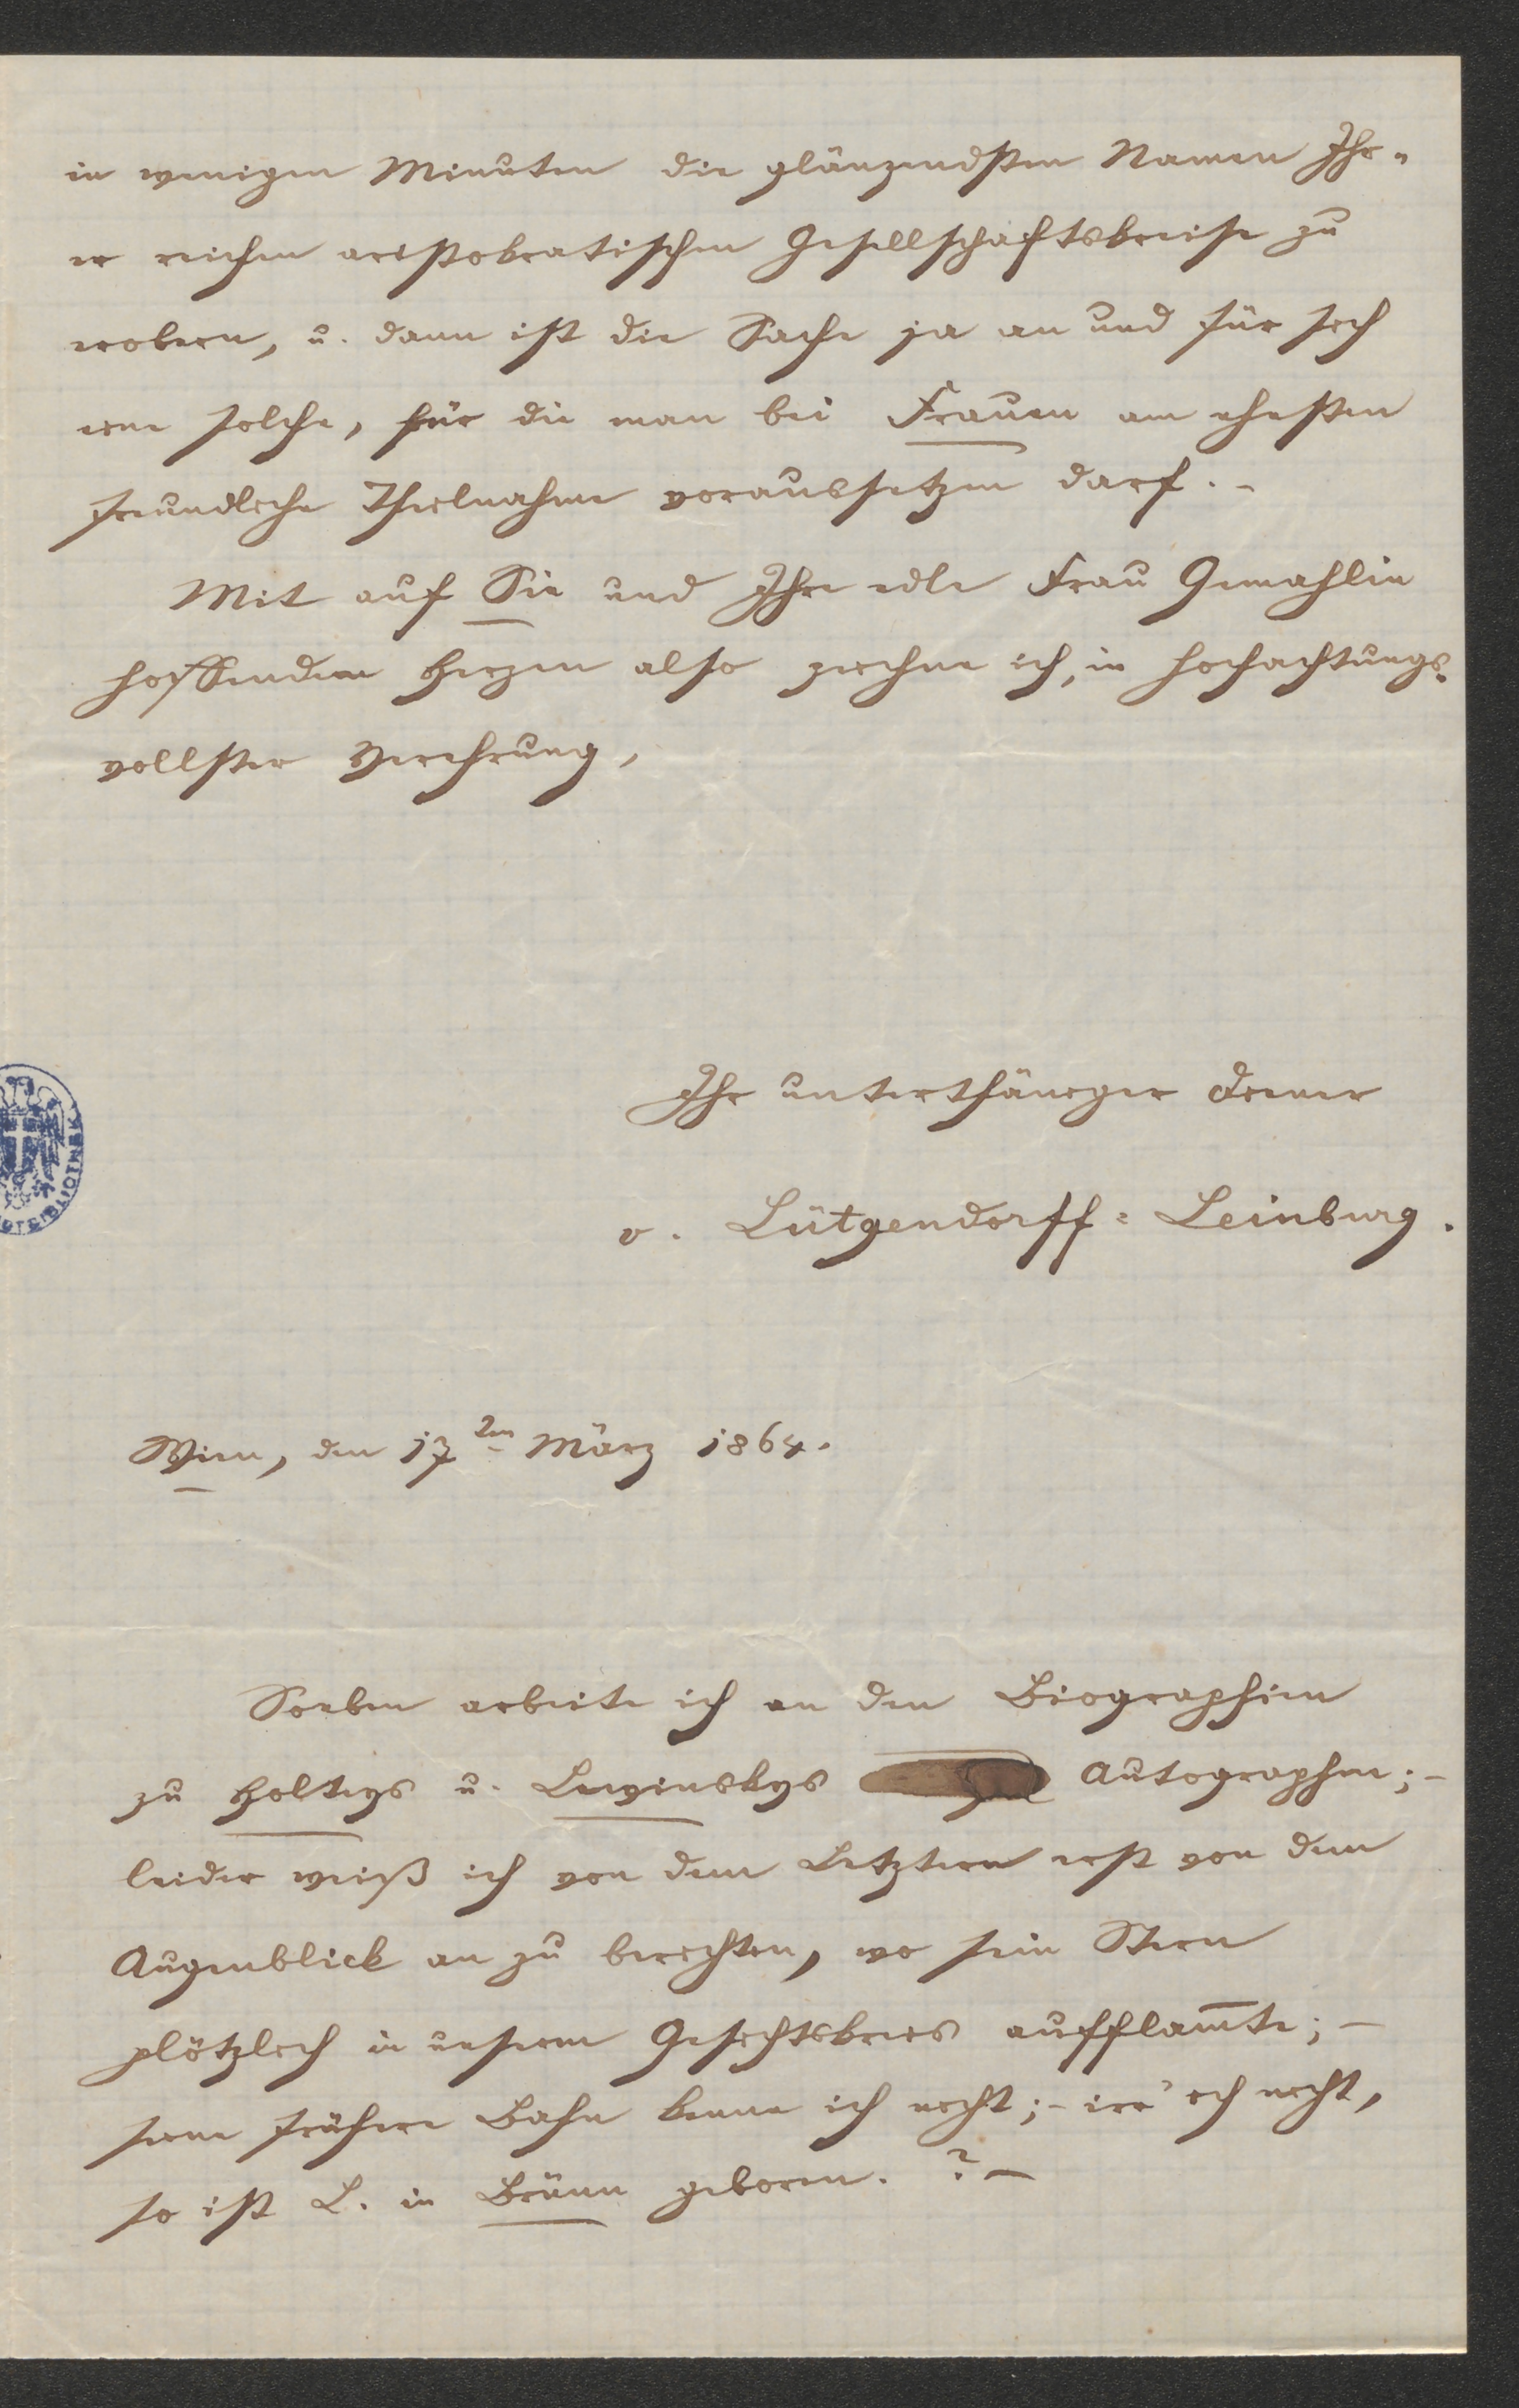 in wenigen Minuten die glänzendsten Namen Ihr-
er reichen aristokratischen Gesellschaftskreise zu
erobern, u. dann ist die Sache ja an und für sich
eine solche, für die man bei Frauen am ehesten
freundliche Theilnahme voraussetzen darf. -
Mit auf Sie und Ihre edle Frau Gemahlin
hoffendem Herzen also zeichne ich, in hochachtungs-
vollster Verehrung,
Ihr unterthäniger Diener
v. Lütgendorff-Leinburg.
Wien, den 17ten März 1864.
Soeben arbeite ich an den Biographien
zu Holteys u. Lewinskys Autographen; -
leider weiß ich von dem Letztern erst von dem
Augenblick an zu berichten, wo sein Stern
plötzlich in unserm Gesichtskreis aufflam̅te; -
seine frühere Bahn kenne ich nicht; - irr' ich nicht,
so ist L. in Brünn geboren. ? -